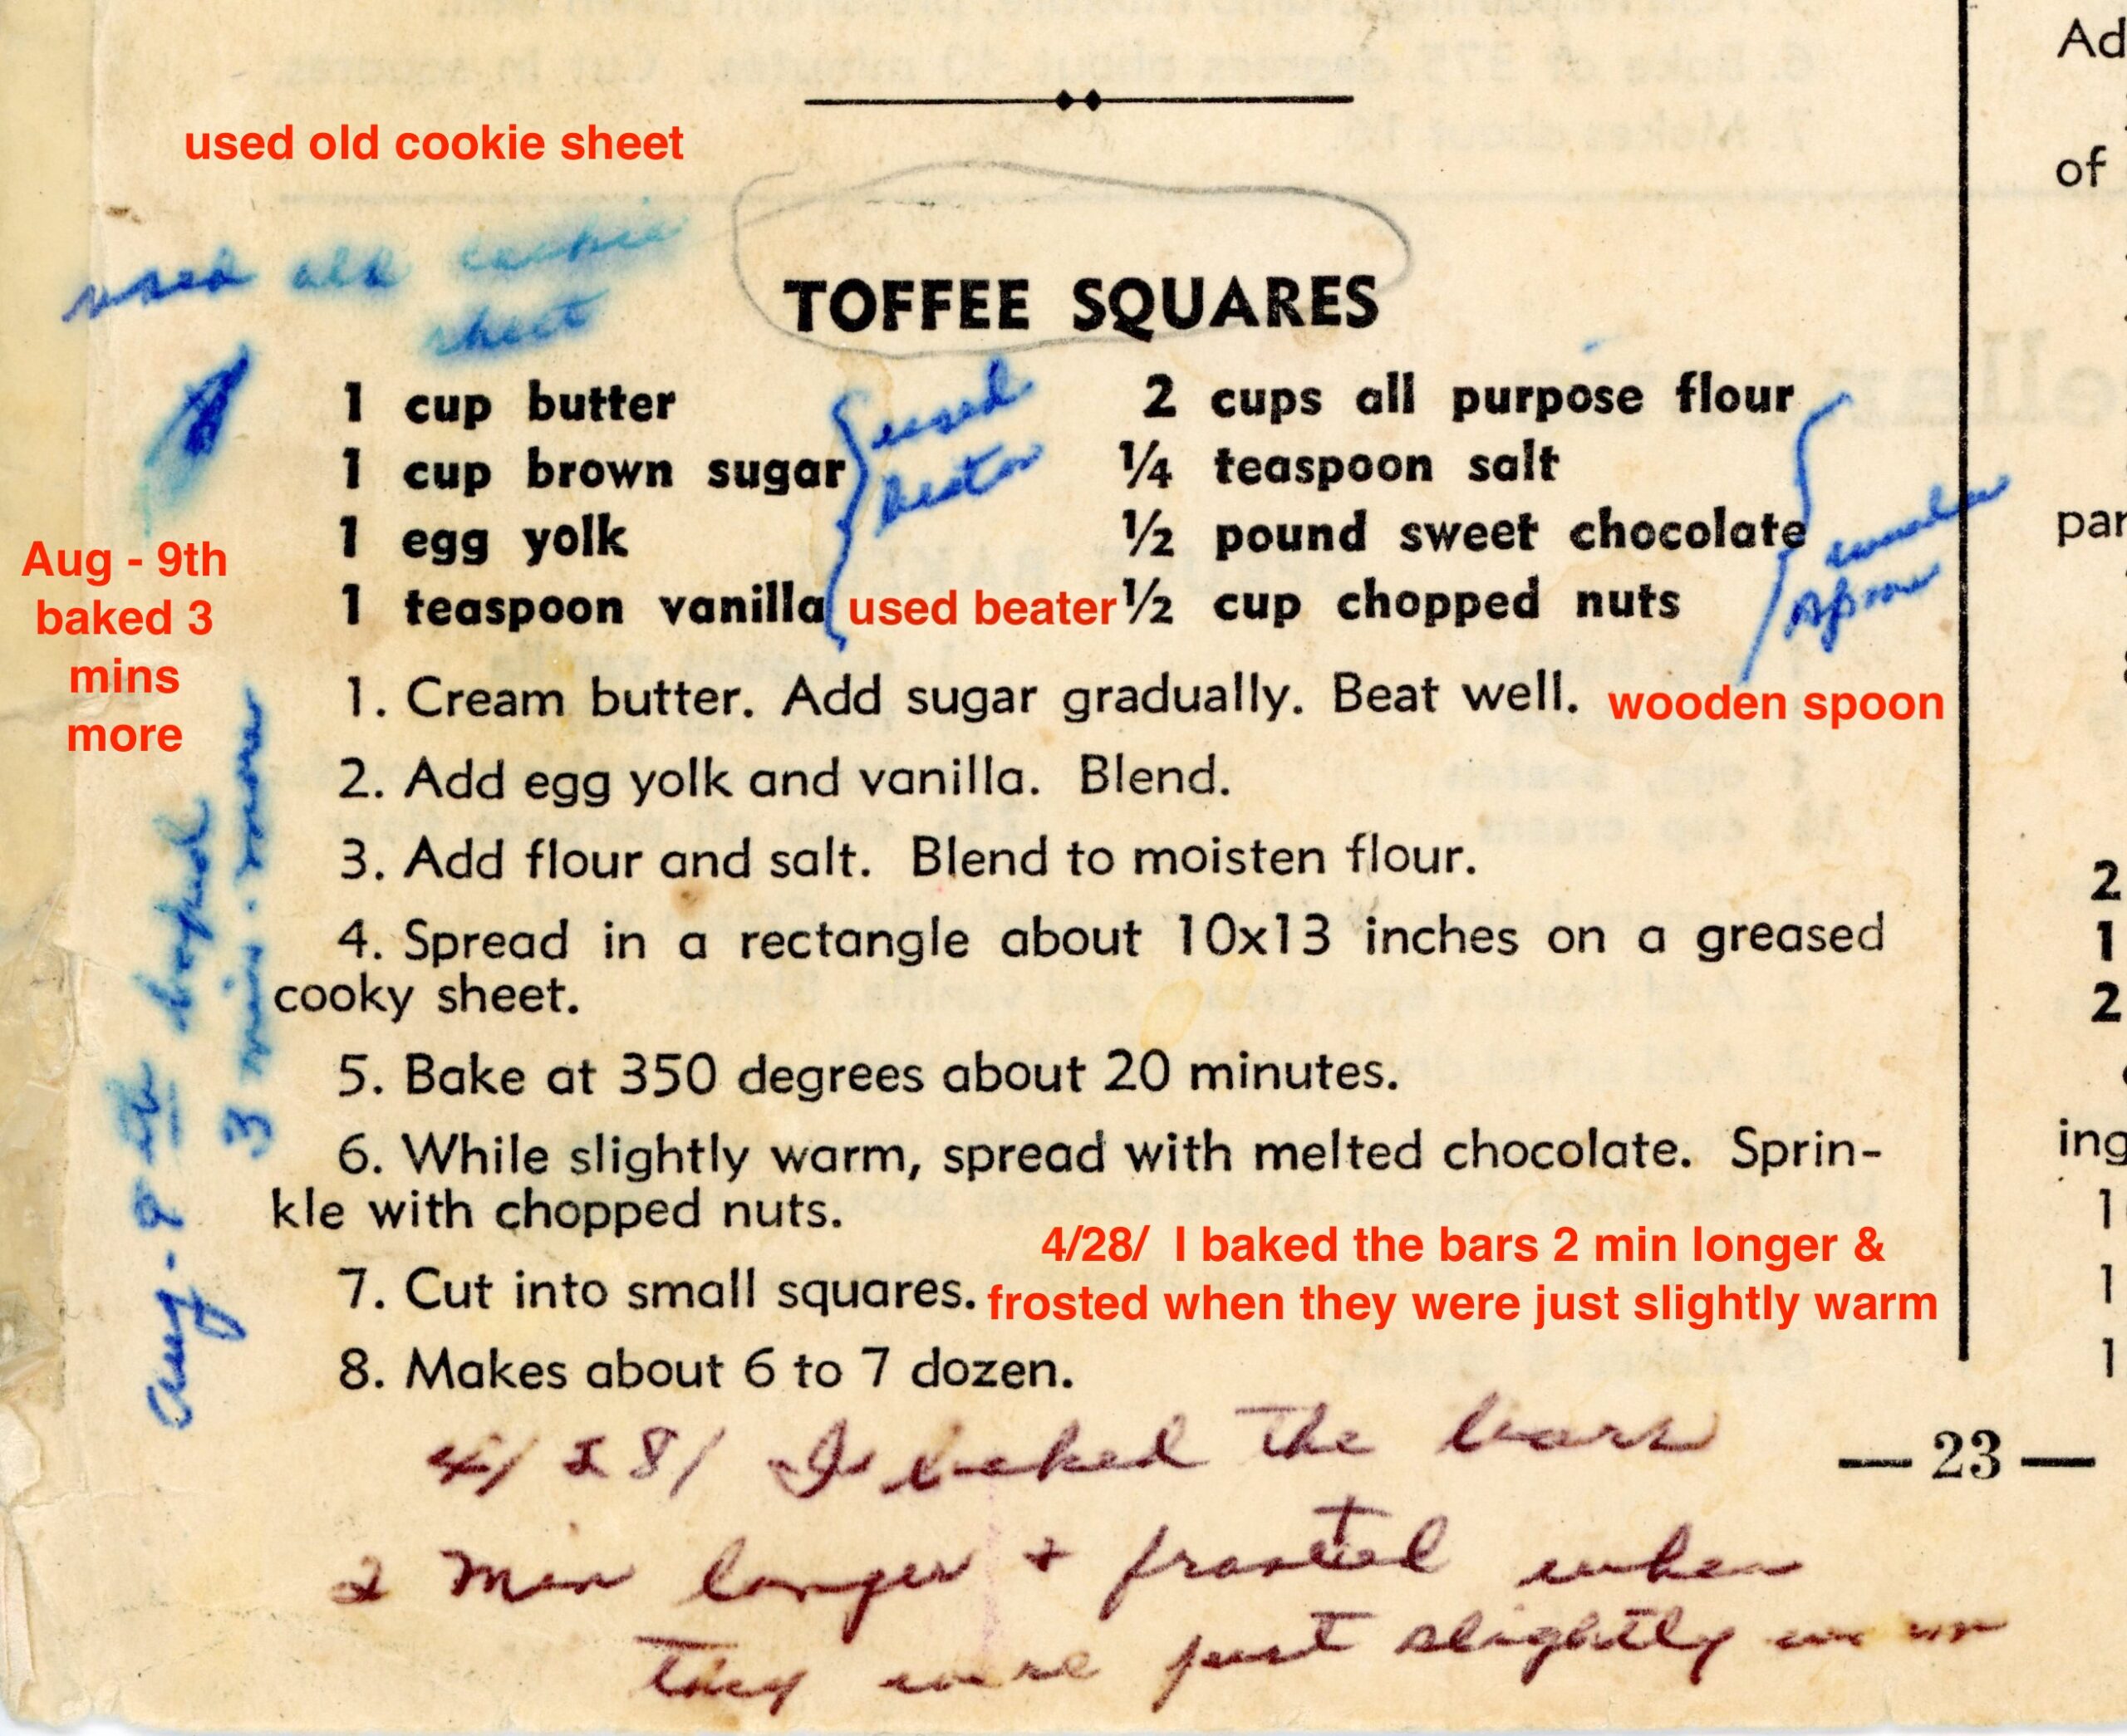 used old cookie sheet
used old cookie
sheet
TOFFEE SQUARES
1 cup butter
1 cup brown sugar
1 egg yolk
1 teaspoon vanilla
used
beater
used beater
2 cups all purpose flour
1/4 teaspoon salt
1/2 pound sweet chocolate
1/2 cup chopped nuts
wooden
spoon
wooden spoon
Aug - 9th
baked 3
mins
more
Aug - 9th baked
3 min. more
1. Cream butter. Add sugar gradually. Beat well.
2. Add egg yolk and vanilla. Blend.
3. Add flour and salt. Blend to moisten flour.
4. Spread in a rectangle about 10x13 inches on a greased
cooky sheet.
5. Bake at 350 degrees about 20 minutes.
6. While slightly warm, spread with melted chocolate. Sprin-
kle with chopped nuts.
7. Cut into small squares.
8. Makes about 6 to 7 dozen.
4/28/ I baked the bars 2 min longer &
frosted when they were just slightly warm
4/28/ I baked the bars
2 min longer + frosted when
they were just slightly warm
— 23 —
Ad
of
par
2
1
2
ing
1
1
1